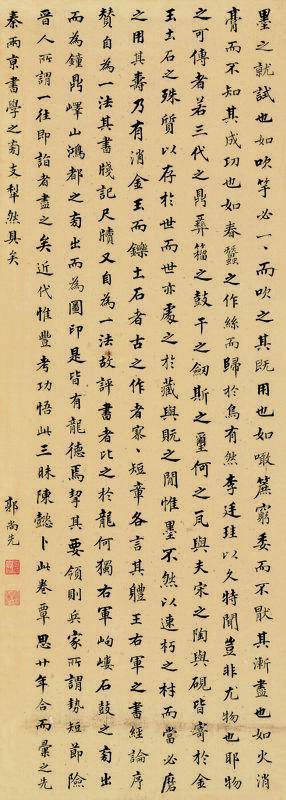 墨之就試也如吹竽必一一而吹之其既用也如噉蔗窮委而不厭其漸盡也如火消
膏而不知其成功也如春蠶之作絲而歸於烏有然李廷珪以久特聞豈非尤物也耶物
之可傳者若三代之鼎彝籀之鼓干之劍斯之璽何之瓦與夫宋之陶與硯皆寄於金
玉土石之殊質以存於世而世亦處之於藏與貦之間惟墨不然以速朽之材而當必磨
之用其壽乃有消金玉而鑠土石者古之作者寥寥短章各言其體王右軍之書經論序
贊自為一法其書牋記尺牘又自為一法故評書者比之於龍何獨右軍岣嶁石鼓之旁出
而為鐘鼎嶧山鴻都之旁出而為圖印是皆有龍德焉挈其要領則兵家所謂勢短節險
晉人所謂一往即詣者盡之矣近代惟豐考功悟此三昧陳懿卜此卷覃思廿年合而彙之先
秦兩京書學之旁支犁然具矣
郭尚先